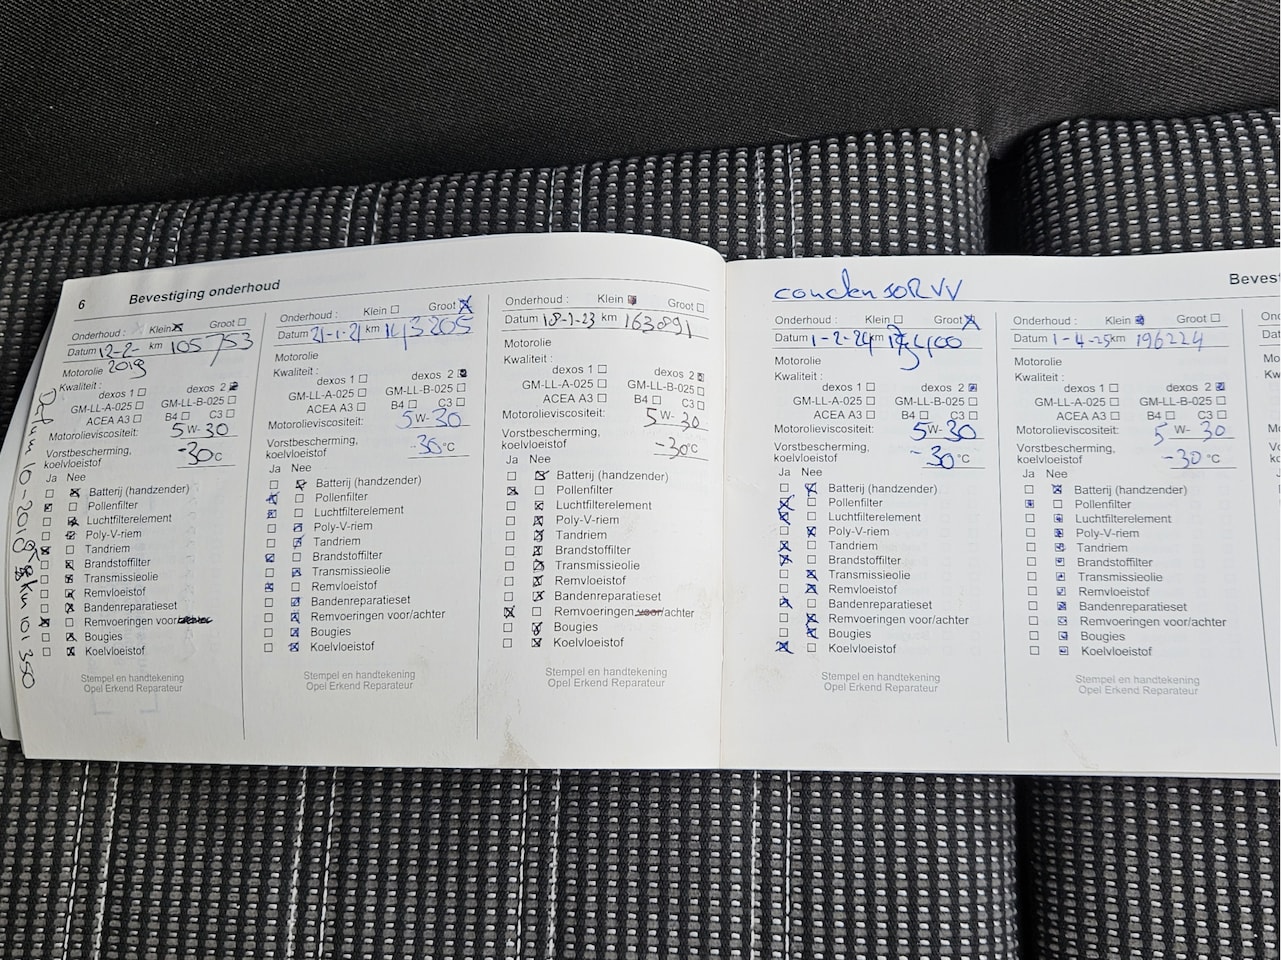 6 Bevestiging onderhoud
Onderhoud : Klein Groot
Datum 12-2- km 105753
2019
Motorolie
Kwaliteit :
dexos 1 dexos 2
GM-LL-A-025 GM-LL-B-025
ACEA A3 B4 C3
Motorolieviscositeit: 5 W- 30
Vorstbescherming,
koelvloeistof -30°C
Ja Nee
Batterij (handzender)
Pollenfilter
Luchtfilterelement
Poly-V-riem
Tandriem
Brandstoffilter
Transmissieolie
Remvloeistof
Bandenreparatieset
Remvoeringen voor/
Bougies
Koelvloeistof
Stempel en handtekening
Opel Erkend Reparateur
km 101350
Onderhoud : Klein Groot
Datum 21-1-21 km 143205
Motorolie
Kwaliteit :
dexos 1 dexos 2
GM-LL-A-025 GM-LL-B-025
ACEA A3 B4 C3
Motorolieviscositeit: 5 W- 30
Vorstbescherming,
koelvloeistof -30°C
Ja Nee
Batterij (handzender)
Pollenfilter
Luchtfilterelement
Poly-V-riem
Tandriem
Brandstoffilter
Transmissieolie
Remvloeistof
Bandenreparatieset
Remvoeringen voor/achter
Bougies
Koelvloeistof
Stempel en handtekening
Opel Erkend Reparateur
Onderhoud : Klein Groot
Datum 18-1-23 km 163891
Motorolie
Kwaliteit :
dexos 1 dexos 2
GM-LL-A-025 GM-LL-B-025
ACEA A3 B4 C3
Motorolieviscositeit: 5 W- 30
Vorstbescherming,
koelvloeistof -30°C
Ja Nee
Batterij (handzender)
Pollenfilter
Luchtfilterelement
Poly-V-riem
Tandriem
Brandstoffilter
Transmissieolie
Remvloeistof
Bandenreparatieset
Remvoeringen voor/achter
Bougies
Koelvloeistof
Stempel en handtekening
Opel Erkend Reparateur
condensoR VV
Onderhoud : Klein Groot
Datum 1-2-24 km
Motorolie
Kwaliteit :
dexos 1 dexos 2
GM-LL-A-025 GM-LL-B-025
ACEA A3 B4 C3
Motorolieviscositeit: 5 W- 30
Vorstbescherming,
koelvloeistof -30°C
Ja Nee
Batterij (handzender)
Pollenfilter
Luchtfilterelement
Poly-V-riem
Tandriem
Brandstoffilter
Transmissieolie
Remvloeistof
Bandenreparatieset
Remvoeringen voor/achter
Bougies
Koelvloeistof
Stempel en handtekening
Opel Erkend Reparateur
Bevest
Onderhoud : Klein Groot
Datum 1-4-25 km 196224
Motorolie
Kwaliteit :
dexos 1 dexos 2
GM-LL-A-025 GM-LL-B-025
ACEA A3 B4 C3
Motorolieviscositeit: 5 W- 30
Vorstbescherming,
koelvloeistof -30°C
Ja Nee
Batterij (handzender)
Pollenfilter
Luchtfilterelement
Poly-V-riem
Tandriem
Brandstoffilter
Transmissieolie
Remvloeistof
Bandenreparatieset
Remvoeringen voor/achter
Bougies
Koelvloeistof
Stempel en handtekening
Opel Erkend Reparateur